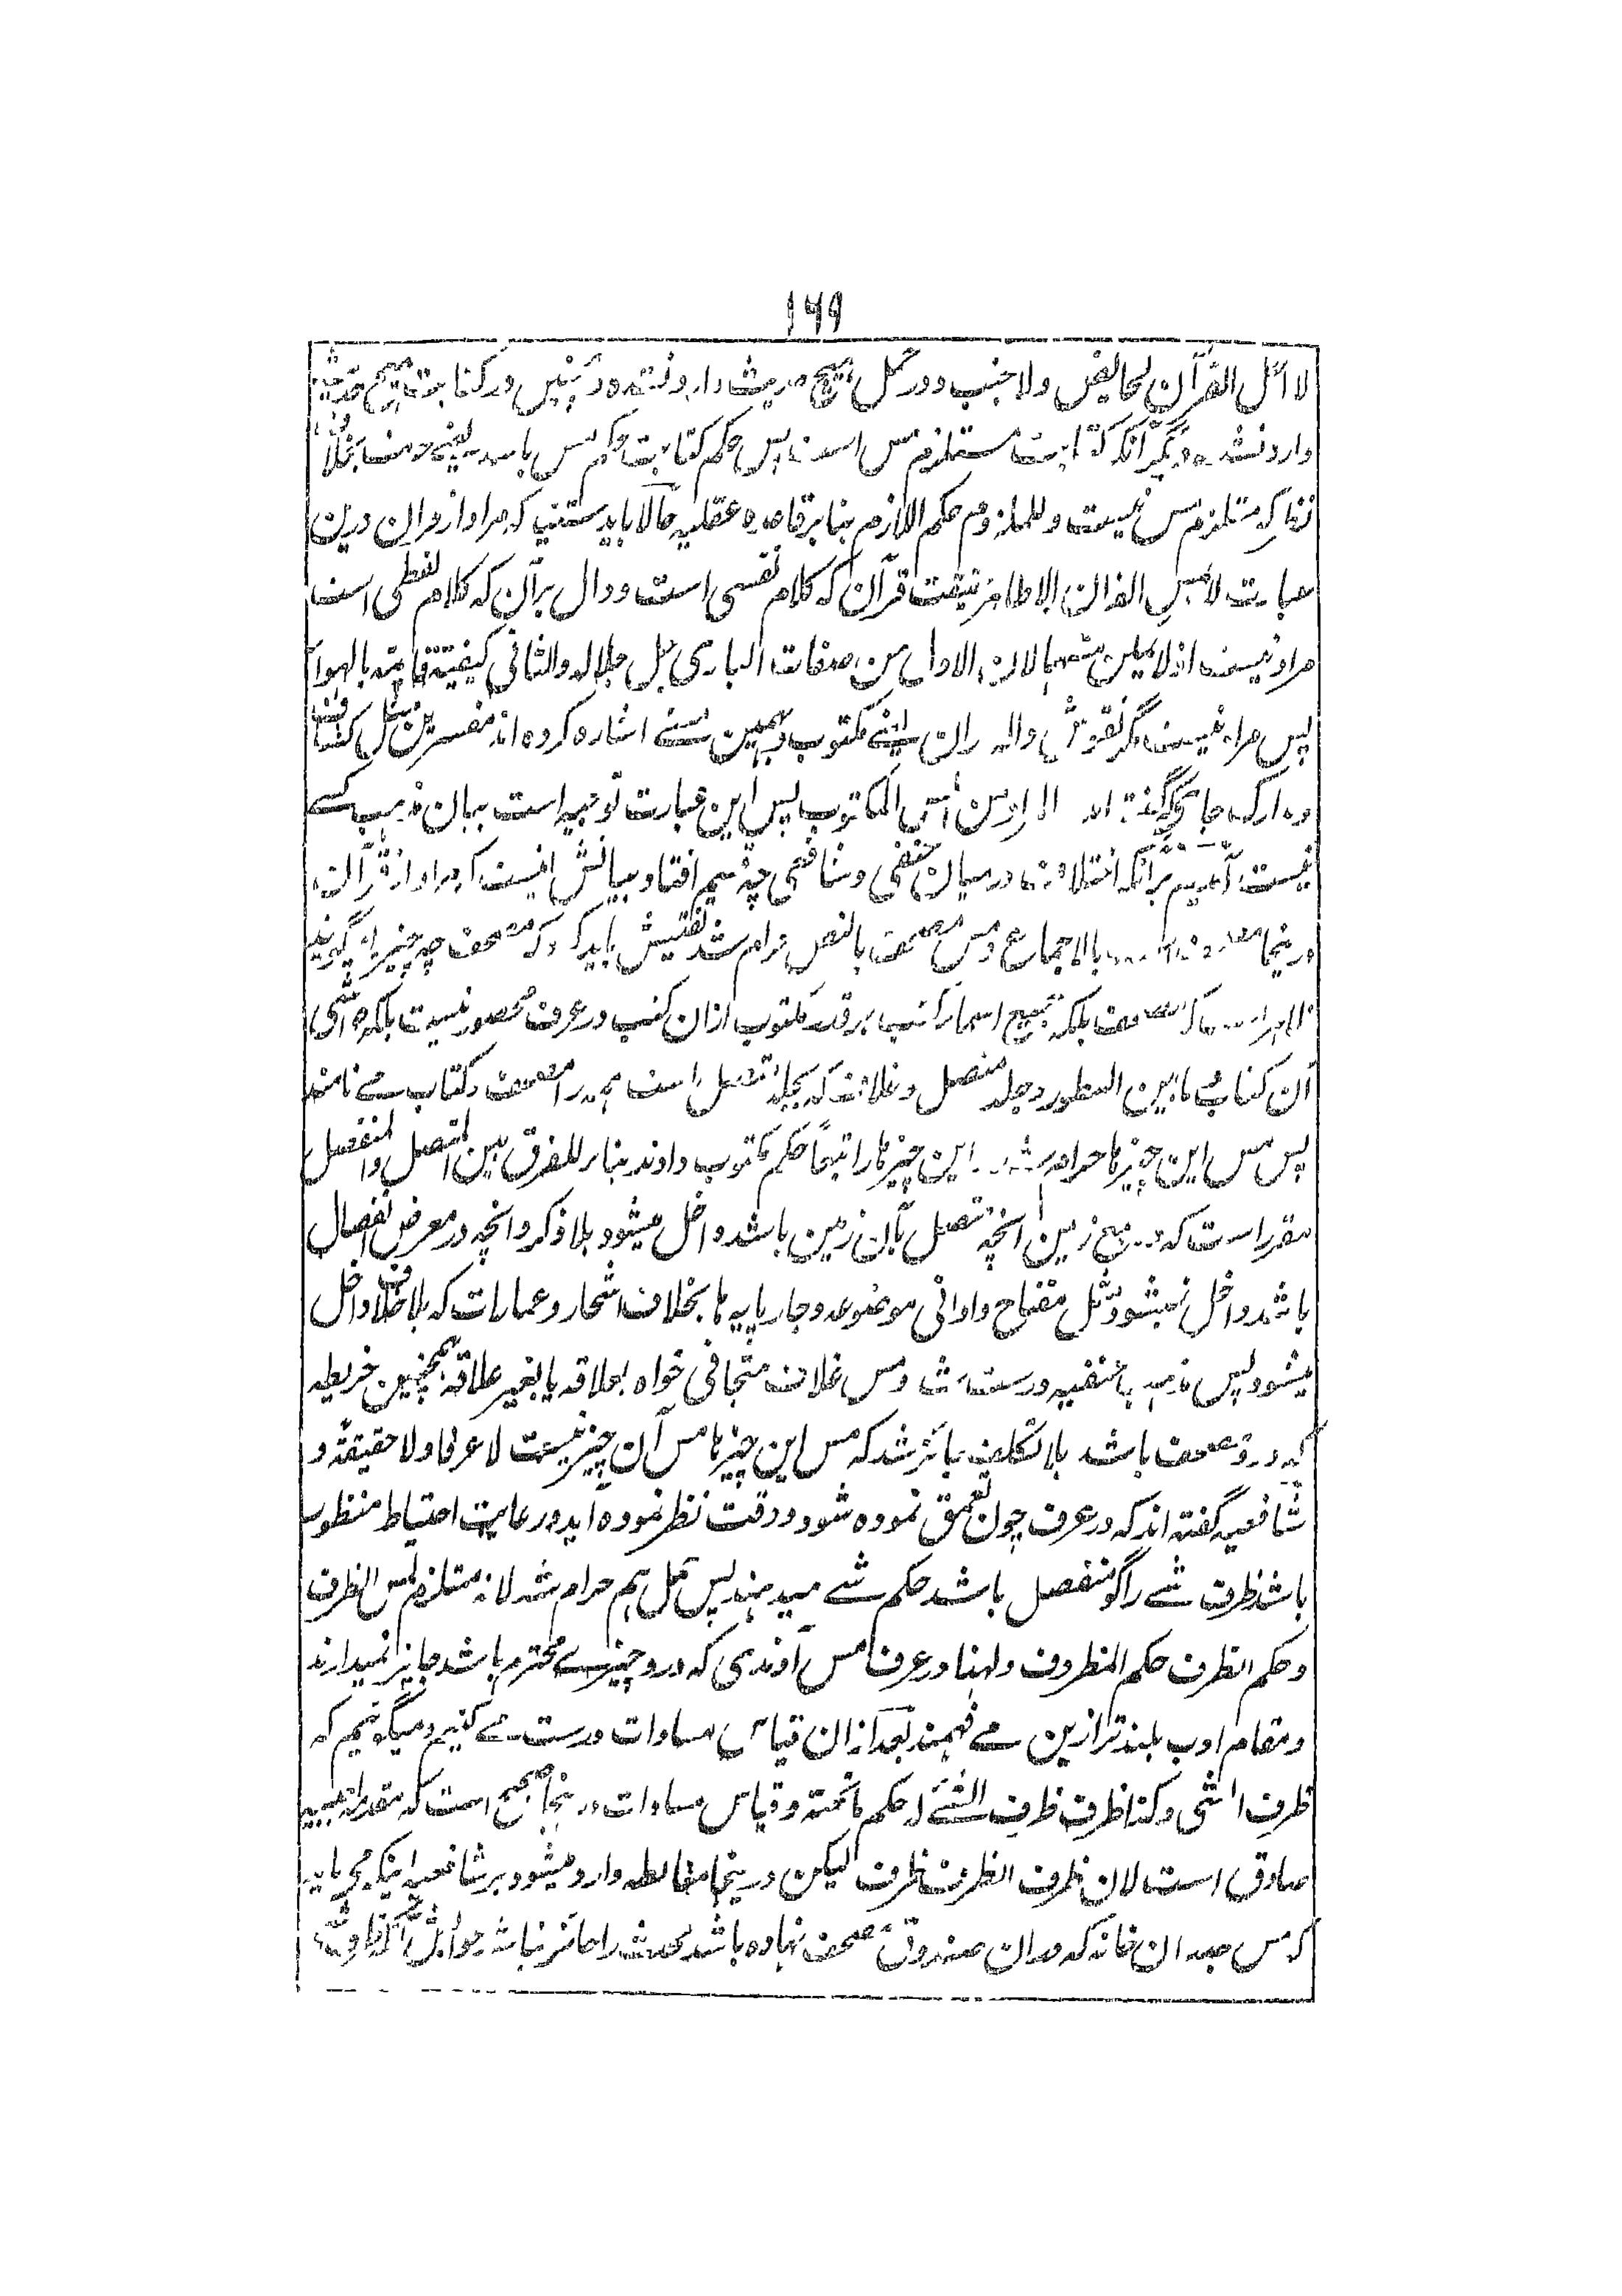 ۱۶۹
لا احل القرآن لحائض ولا جنب و در حمل هیچ حدیث وارد نشده و همچنین در کتابت هیچ حدیث
وارد نشده دیگر آنکه کتابت مستلزم مس است پس حکم کتابت حکم مس باشد یعنی حرمت بخلاف
که مستلزم مس نیست وللملزوم حکم اللازم بنا بر قاعده عقلیه حالا باید دانست که مراد از قرآن درین
عبارت لا یمس القرآن الا طاهر حقیقت قرآن که کلام نفسی است و دال بر آن که کلام لفظی است
مراد نیست اذ لا یمکن مسهما لان الاول من صفات الباری جل جلاله والثانی کیفیة قائمة بالهواء
پس مراد نیست مگر نقوش داله بران یعنی مکتوب بهمین معنی اشاره کرده اند مفسرین مثل کشاف
و مدارک جائیکه گفته اند المراد من المس المکتوب پس این عبارت توجیه است بیان مذهب کسے
نیست آمدیم برآنکه اختلاف در میان حنفی و شافعی چه قسم افتاد بیانش اینست که مراد از قرآن
درینجا مصحف بالاجماع و مس مصحف بالنص حرام شد تفتیش باید کرد که مصحف چه چیز را میگویند
مصحف بلکه جمیع اسماء کتب بر قدر مکتوب ازان کتب در عرف مقصور نیست بلکه حواشی
آن کتاب و ما بین السطور و جلد متصل و غلاف که بجلد متصل است همه را مصحف و کتاب مے نامند
پس مس این چیزها حرام شد این چیزها را تبعاً حکم مکتوب دادند بناء للفرق بین المتصل والمنفصل
مقرر است که در بیع زمین آنچه متصل بآن زمین باشد داخل میشود بلا ذکر و آنچه در معرض انفصال
باشد داخل نمیشود مثل مفتاح و اوانی موضوعه و چارپایه ها بخلاف اشجار و عمارات که بلا خلاف داخل
میشود پس مذهب حنفیه درست شد و مس غلاف متجافی خواه بعلاقه یا بغیر علاقه همچنین خریطه
که درو مصحف باشد بلا تکلیف جائز شد که مس این چیزها مس آن چیز نیست لا عرفا ولا حقیقة و
شافعیه گفته اند که در عرف چون تعمق نموده شود و دقت نظر نموده آید و رعایت احتیاط منظور
باشد ظرف شے را گو منفصل باشد حکم شے میدهند پس حمل هم حرام شد لانه مستلزم لمس الظرف
و حکم الظرف حکم المظروف ولهذا در عرف مس آوندی که درو چیزے محترم باشد جایز نمیدارند
و مقام ادب بلندتر ازین مے فهمند بعد ازان قیاس مساوات درست مے کنیم و میگوئیم که
ظرف الشی وکذا ظرف ظرف الشئے له حکم ما تحته و قیاس مساوات درینجا صحیح است که مقدمه اجنبیه
صادق است لان ظرف الظرف ظرف لیکن درینجا مغالطه وارد میشود بر شافعیه اینکه می باید
که مس جدا ان خانه که دران صندوق مصحف نهاده باشد محدث را جائز نباشد جوابش